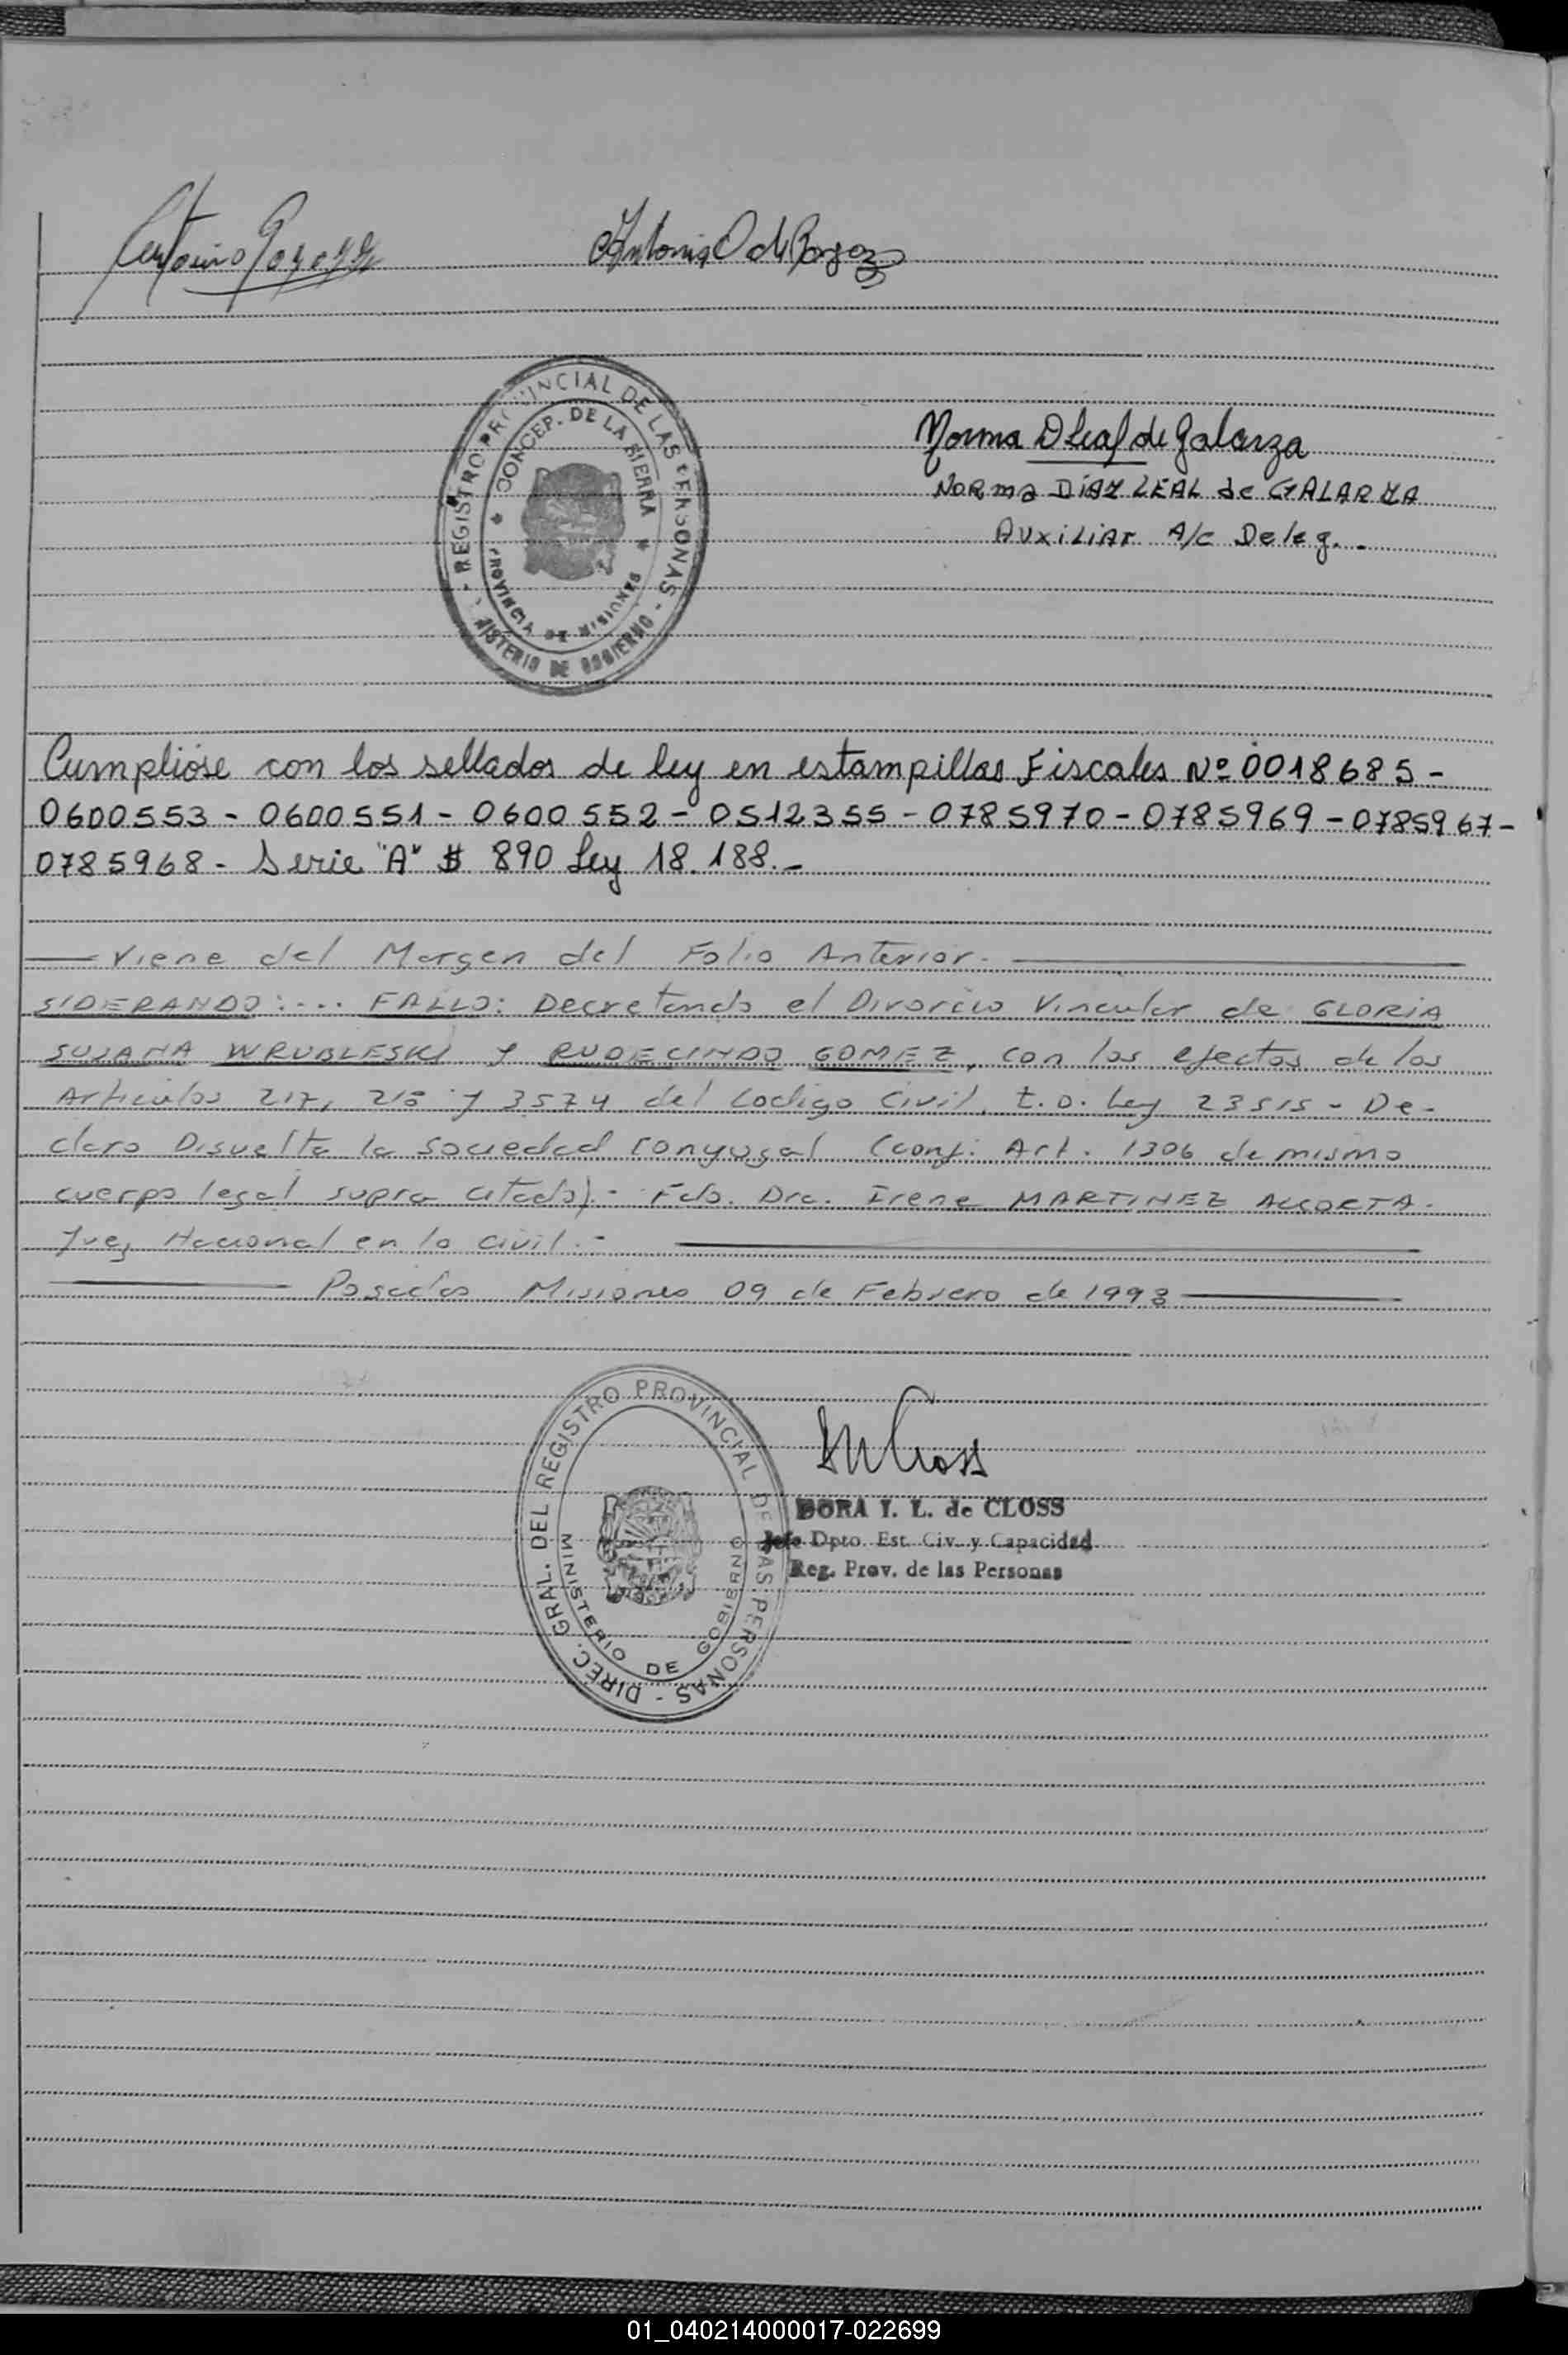 Antonio
Antonia O de
REGISTRO PROVINCIAL DE LAS PERSONAS - MINISTERIO DE GOBIERNO
CONCEP. DE LA SIERRA
PROVINCIA DE MISIONES
Norma D Leal de Galarza
Norma DIAZ LEAL de GALARZA
Auxiliar A/c Deleg..
Cumplióse con los sellados de ley en estampillas Fiscales Nº 0018685 -
0600553 - 0600551 - 0600552 - 0512355 - 0785970 - 0785969 - 0785967 -
0785968 - Serie "A" $ 890 Ley 18.188.-
Viene del Margen del Folio Anterior.
SIDERANDO:.... FALLO: Decretando el Divorcio Vincular de GLORIA
SUSANA WRUBLESKI y RUDECINDO GOMEZ, con los efectos de los
Articulos 217, 218 y 3574 del Codigo Civil, t.o. Ley 23515 - De-
claro Disuelta la Sociedad Conyugal (conf. Art. 1306 de mismo
cuerpo legal supra citado).- Fdo. Dra. Irene MARTINEZ ALCORTA.
Juez Nacional en lo Civil.-
Posadas Misiones 09 de Febrero de 1993
DIREC. GRAL. DEL REGISTRO PROVINCIAL DE LAS PERSONAS -
MINISTERIO DE GOBIERNO
DORA I. L. de CLOSS
Jefe Dpto. Est. Civ. y Capacidad
Reg. Prov. de las Personas
01_040214000017-022699